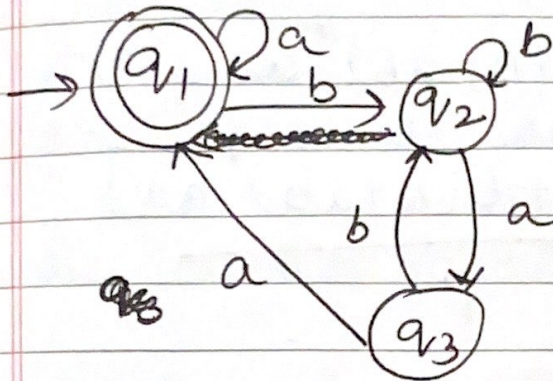 q1 a b q2 b
b a
a
q3